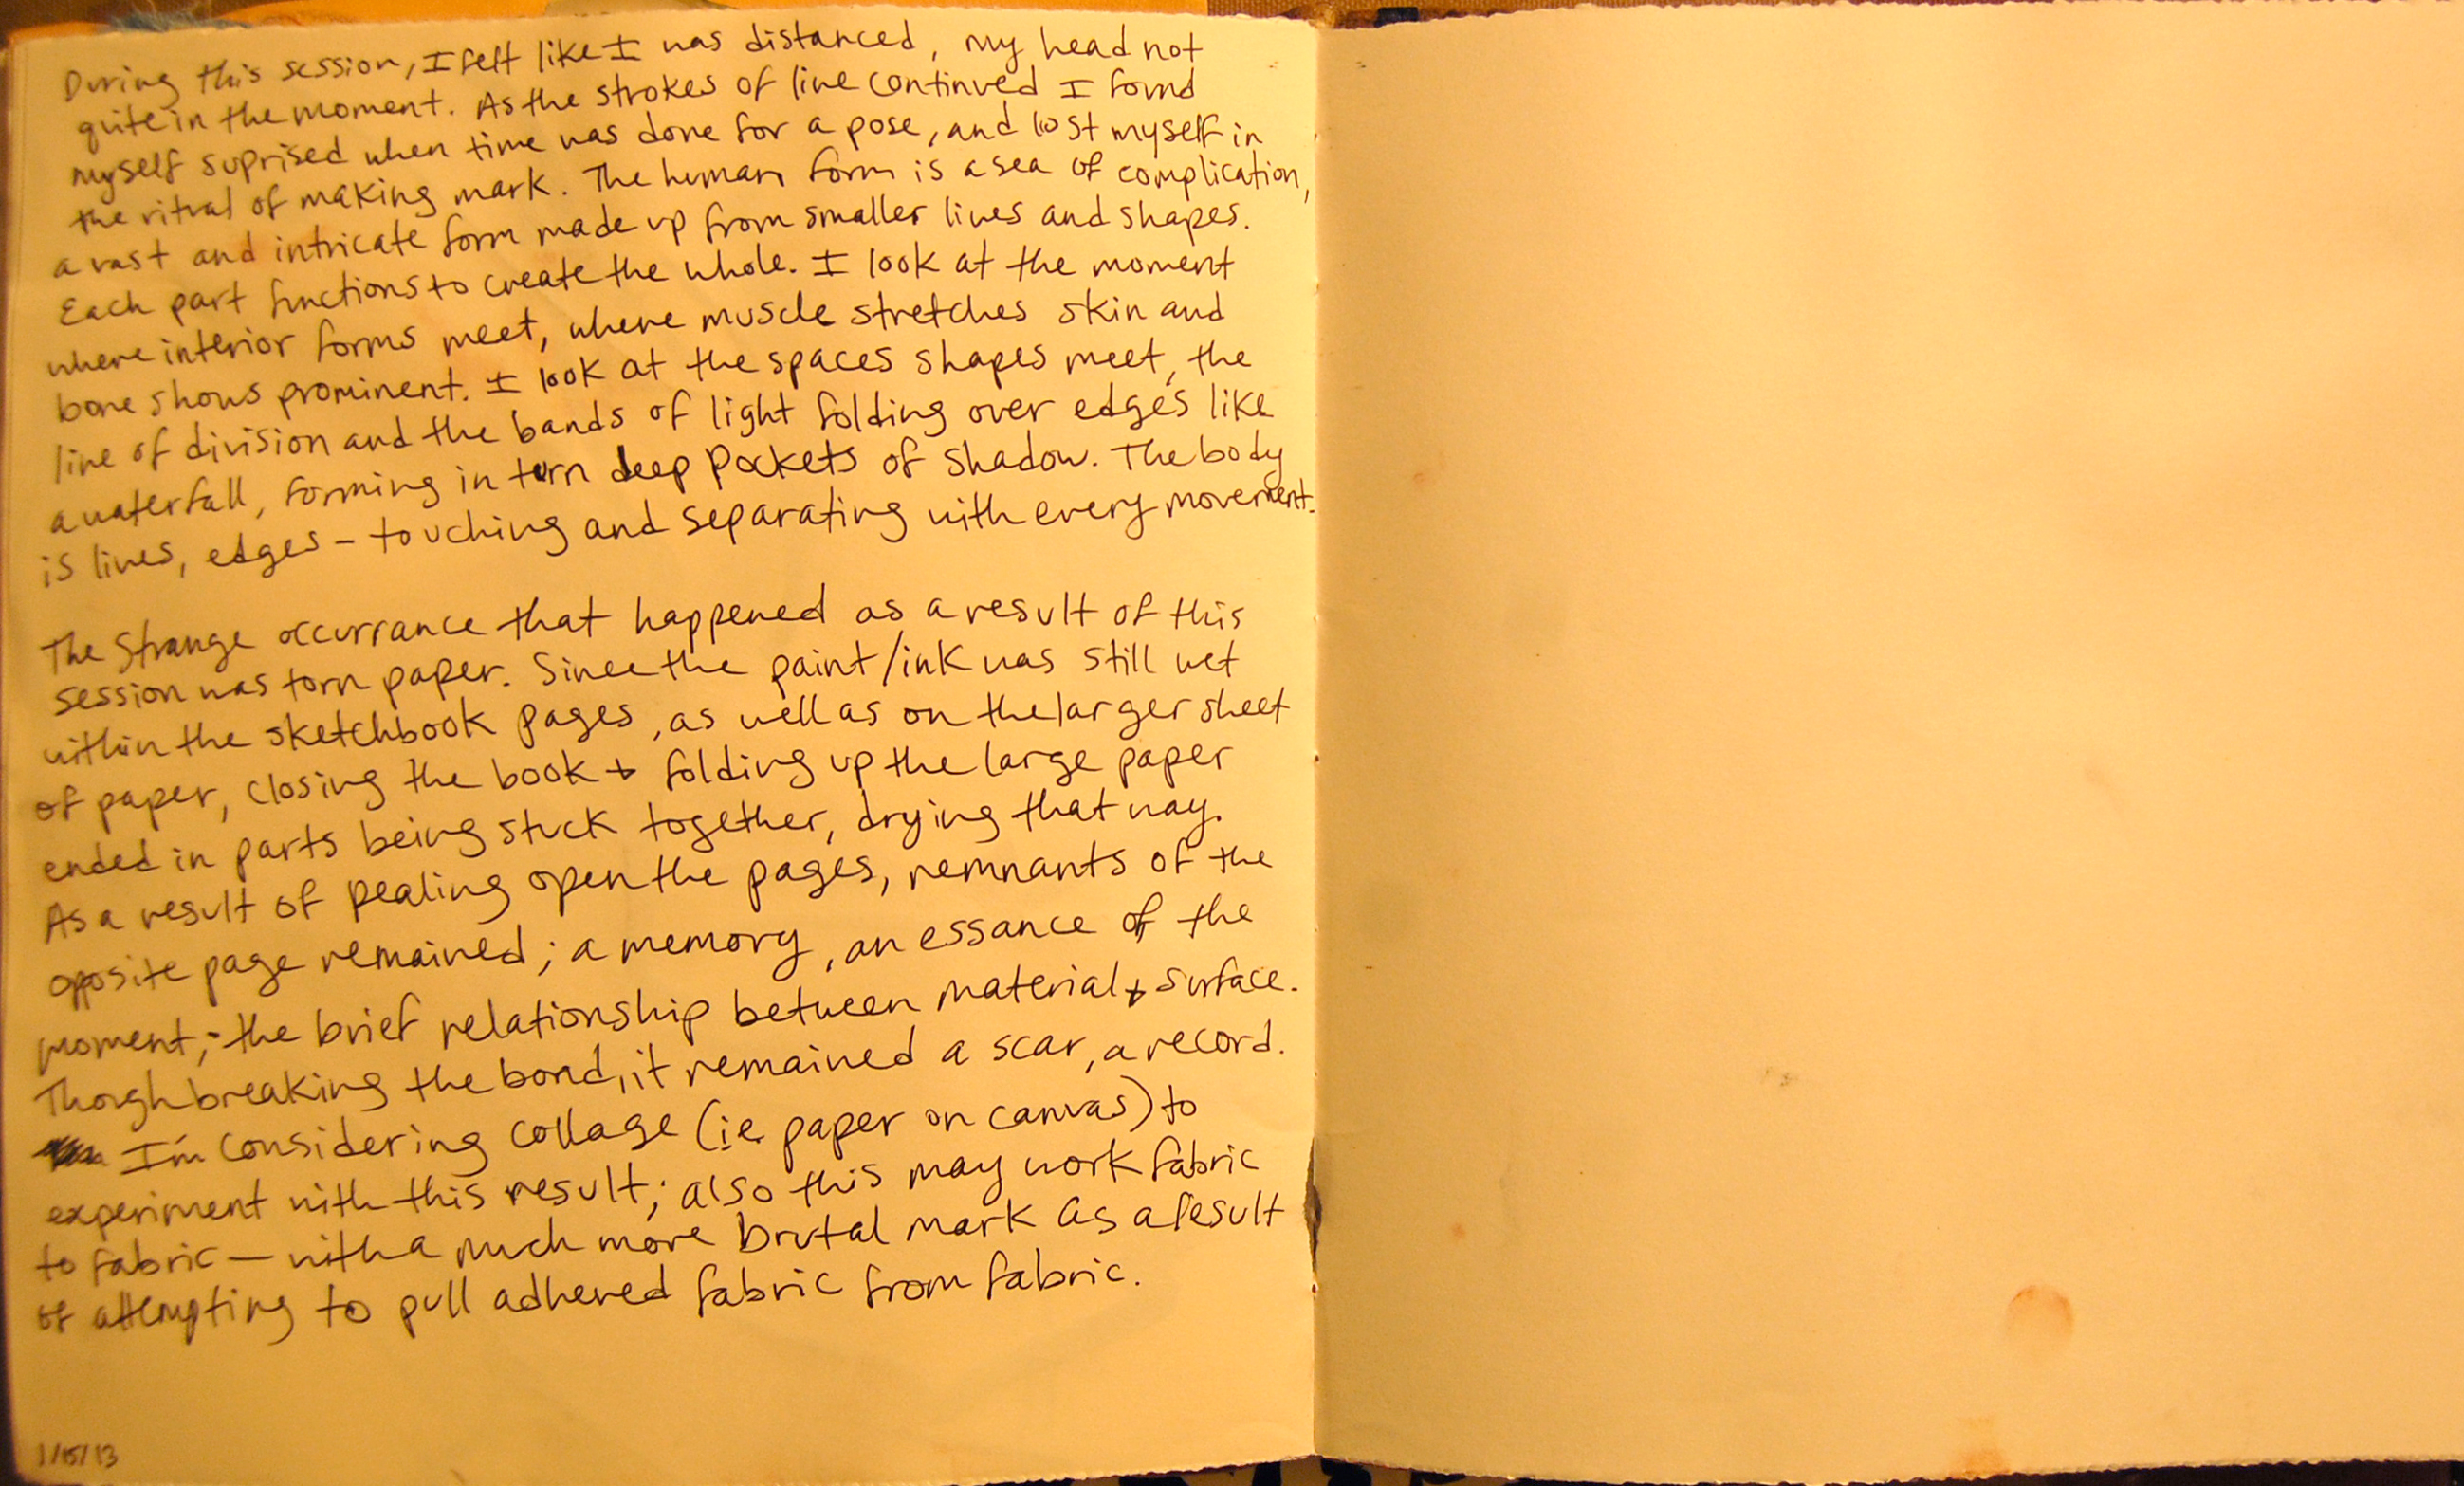 During this session, I felt like I was distanced, my head not
quite in the moment. As the strokes of line continued I found
myself suprised when time was done for a pose, and lost myself in
the ritual of making mark. The human form is a sea of complication,
a vast and intricate form made up from smaller lines and shapes.
Each part functions to create the whole. I look at the moment
where interior forms meet, where muscle stretches skin and
bone shows prominent. I look at the spaces shapes meet, the
line of division and the bands of light folding over edges like
a waterfall, forming in turn deep pockets of shadow. The body
is lines, edges - touching and separating with every movement.
The Strange occurrance that happened as a result of this
session was torn paper. Since the paint/ink was still wet
within the sketchbook pages, as well as on the larger sheet
of paper, closing the book + folding up the large paper
ended in parts being stuck together, drying that way.
As a result of pealing open the pages, remnants of the
opposite page remained; a memory, an essance of the
moment; the brief relationship between material + surface.
Thoughbreaking the bond, it remained a scar, a record.
I'm considering collage (ie paper on canvas) to
experiment with this result; also this may work fabric
to fabric — with a much more brutal mark as a result
of attempting to pull adhered fabric from fabric.
1/15/13